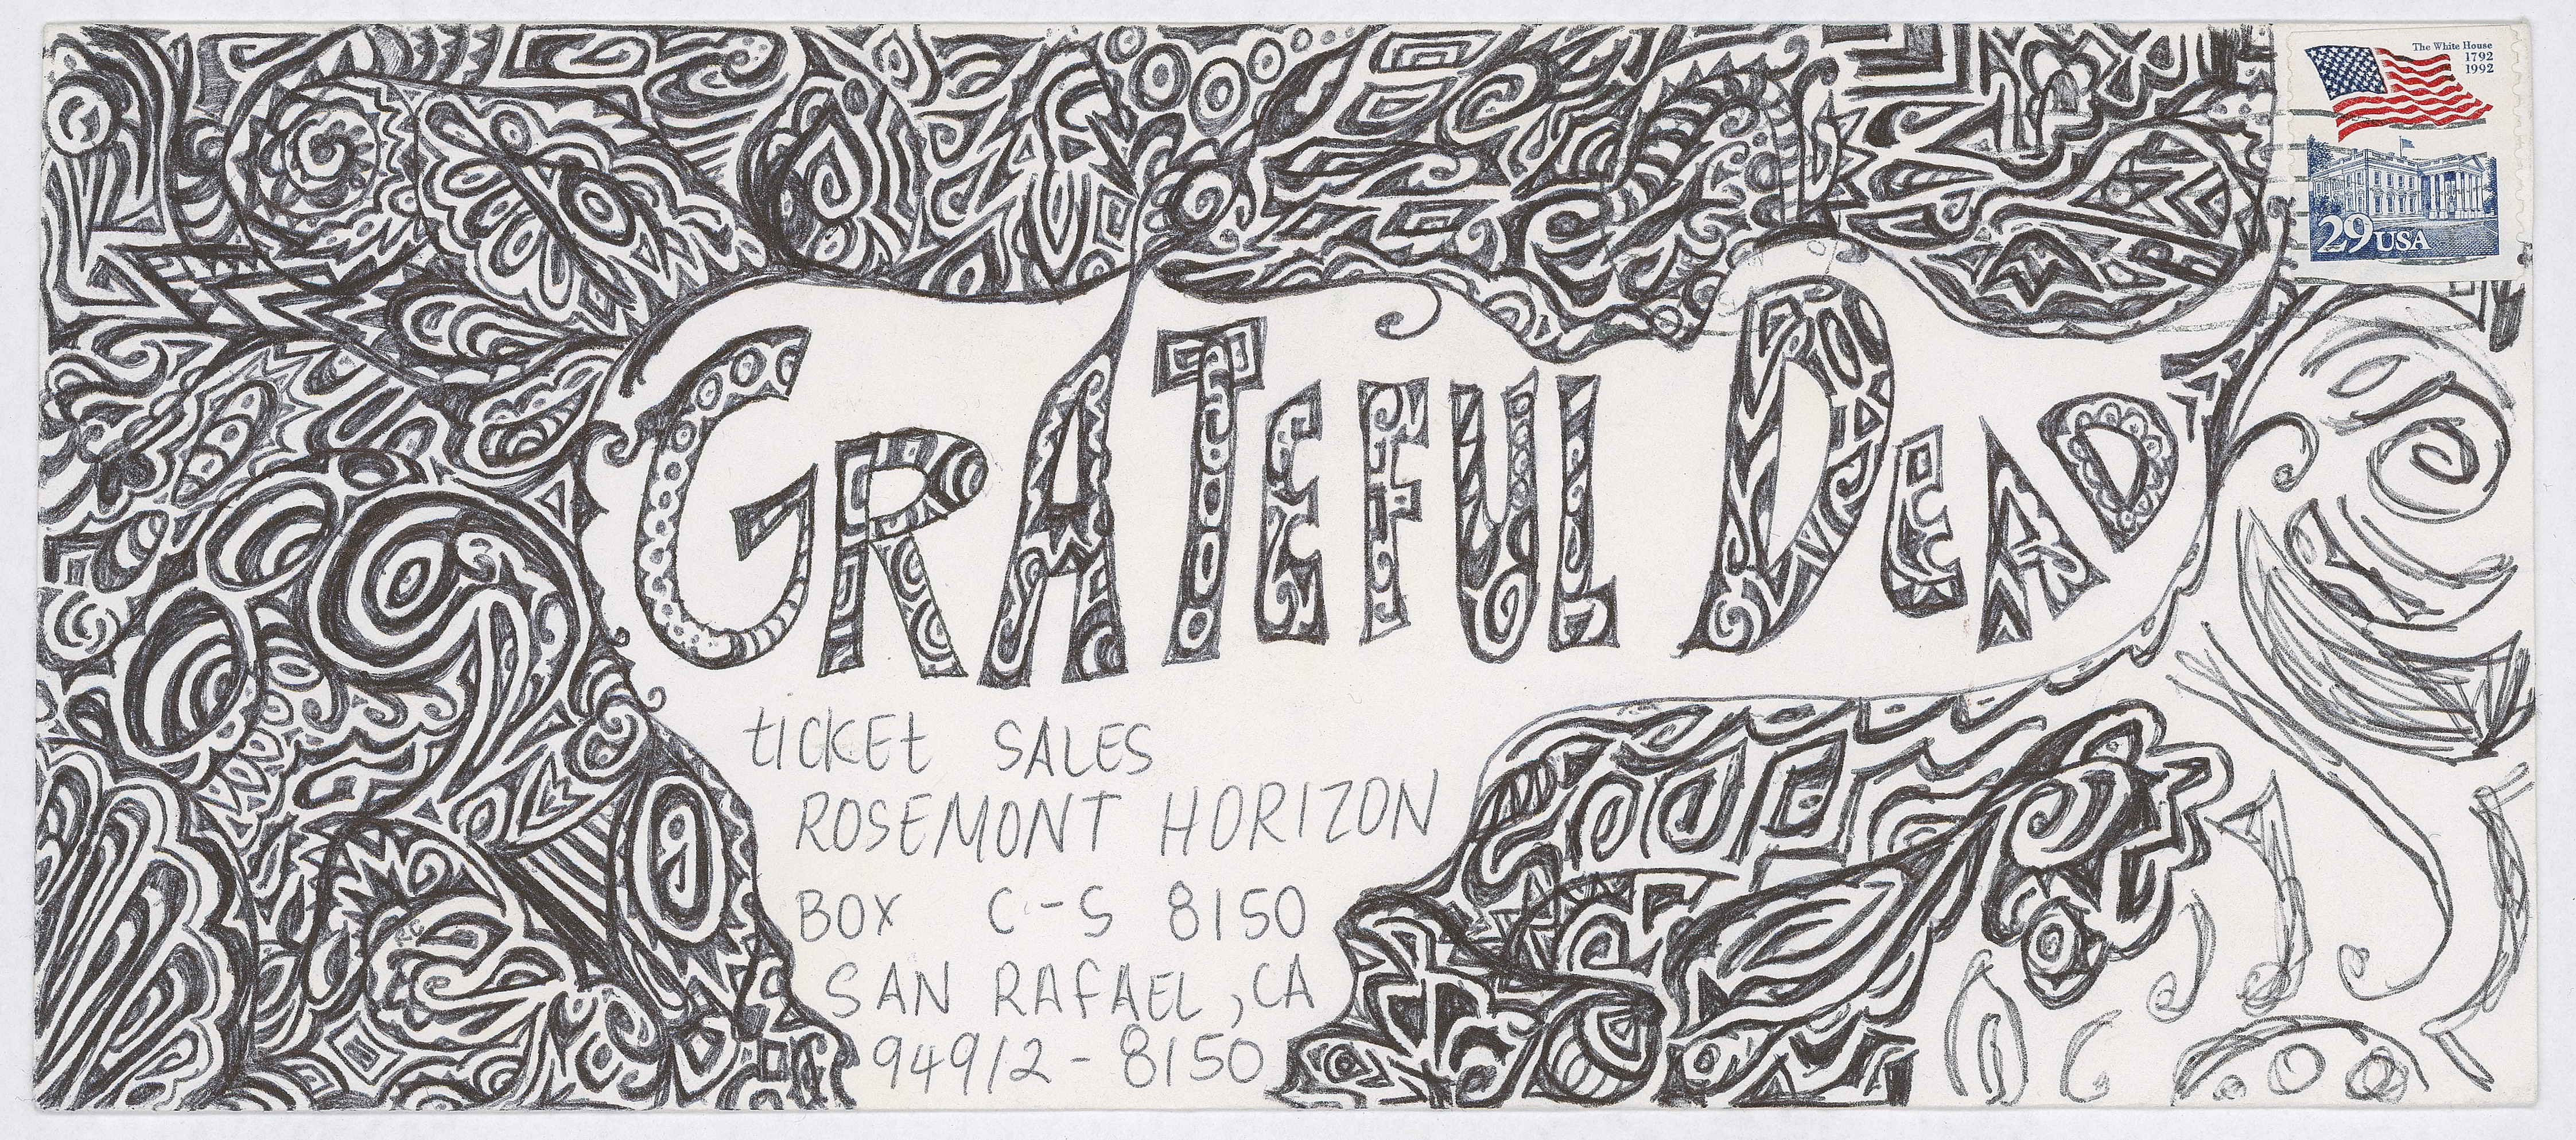 The White House
1792
1992
29 USA
GRATEFUL DEAD
tICKEt SALES
ROSEMONT HORIZON
BOX C-S 8150
SAN RAFAEL, CA
94912-8150